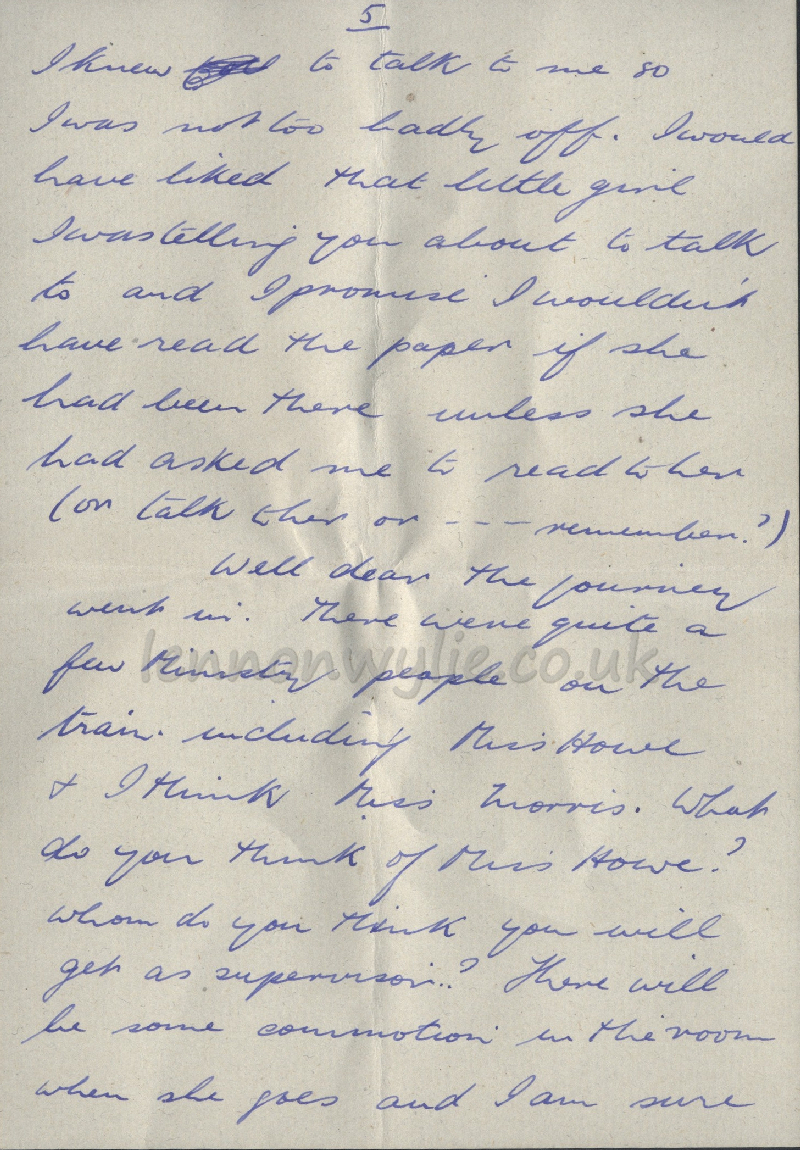 5
I knew to talk to me so
I was not too badly off. I would
have liked that little girl
I was telling you about to talk
to and I promise I wouldn't
have read the paper if she
had been there unless she
had asked me to read to her
(or talk to her or --- remember?)
Well dear the journey
went in. There were quite a
few Ministry people on the
lennonwylie.co.uk
train. including Miss Howe
& I think Miss Morris. What
do you think of Miss Howe?
whom do you think you will
get as supervisor.? There will
be some commotion in the room
when she goes and I am sure